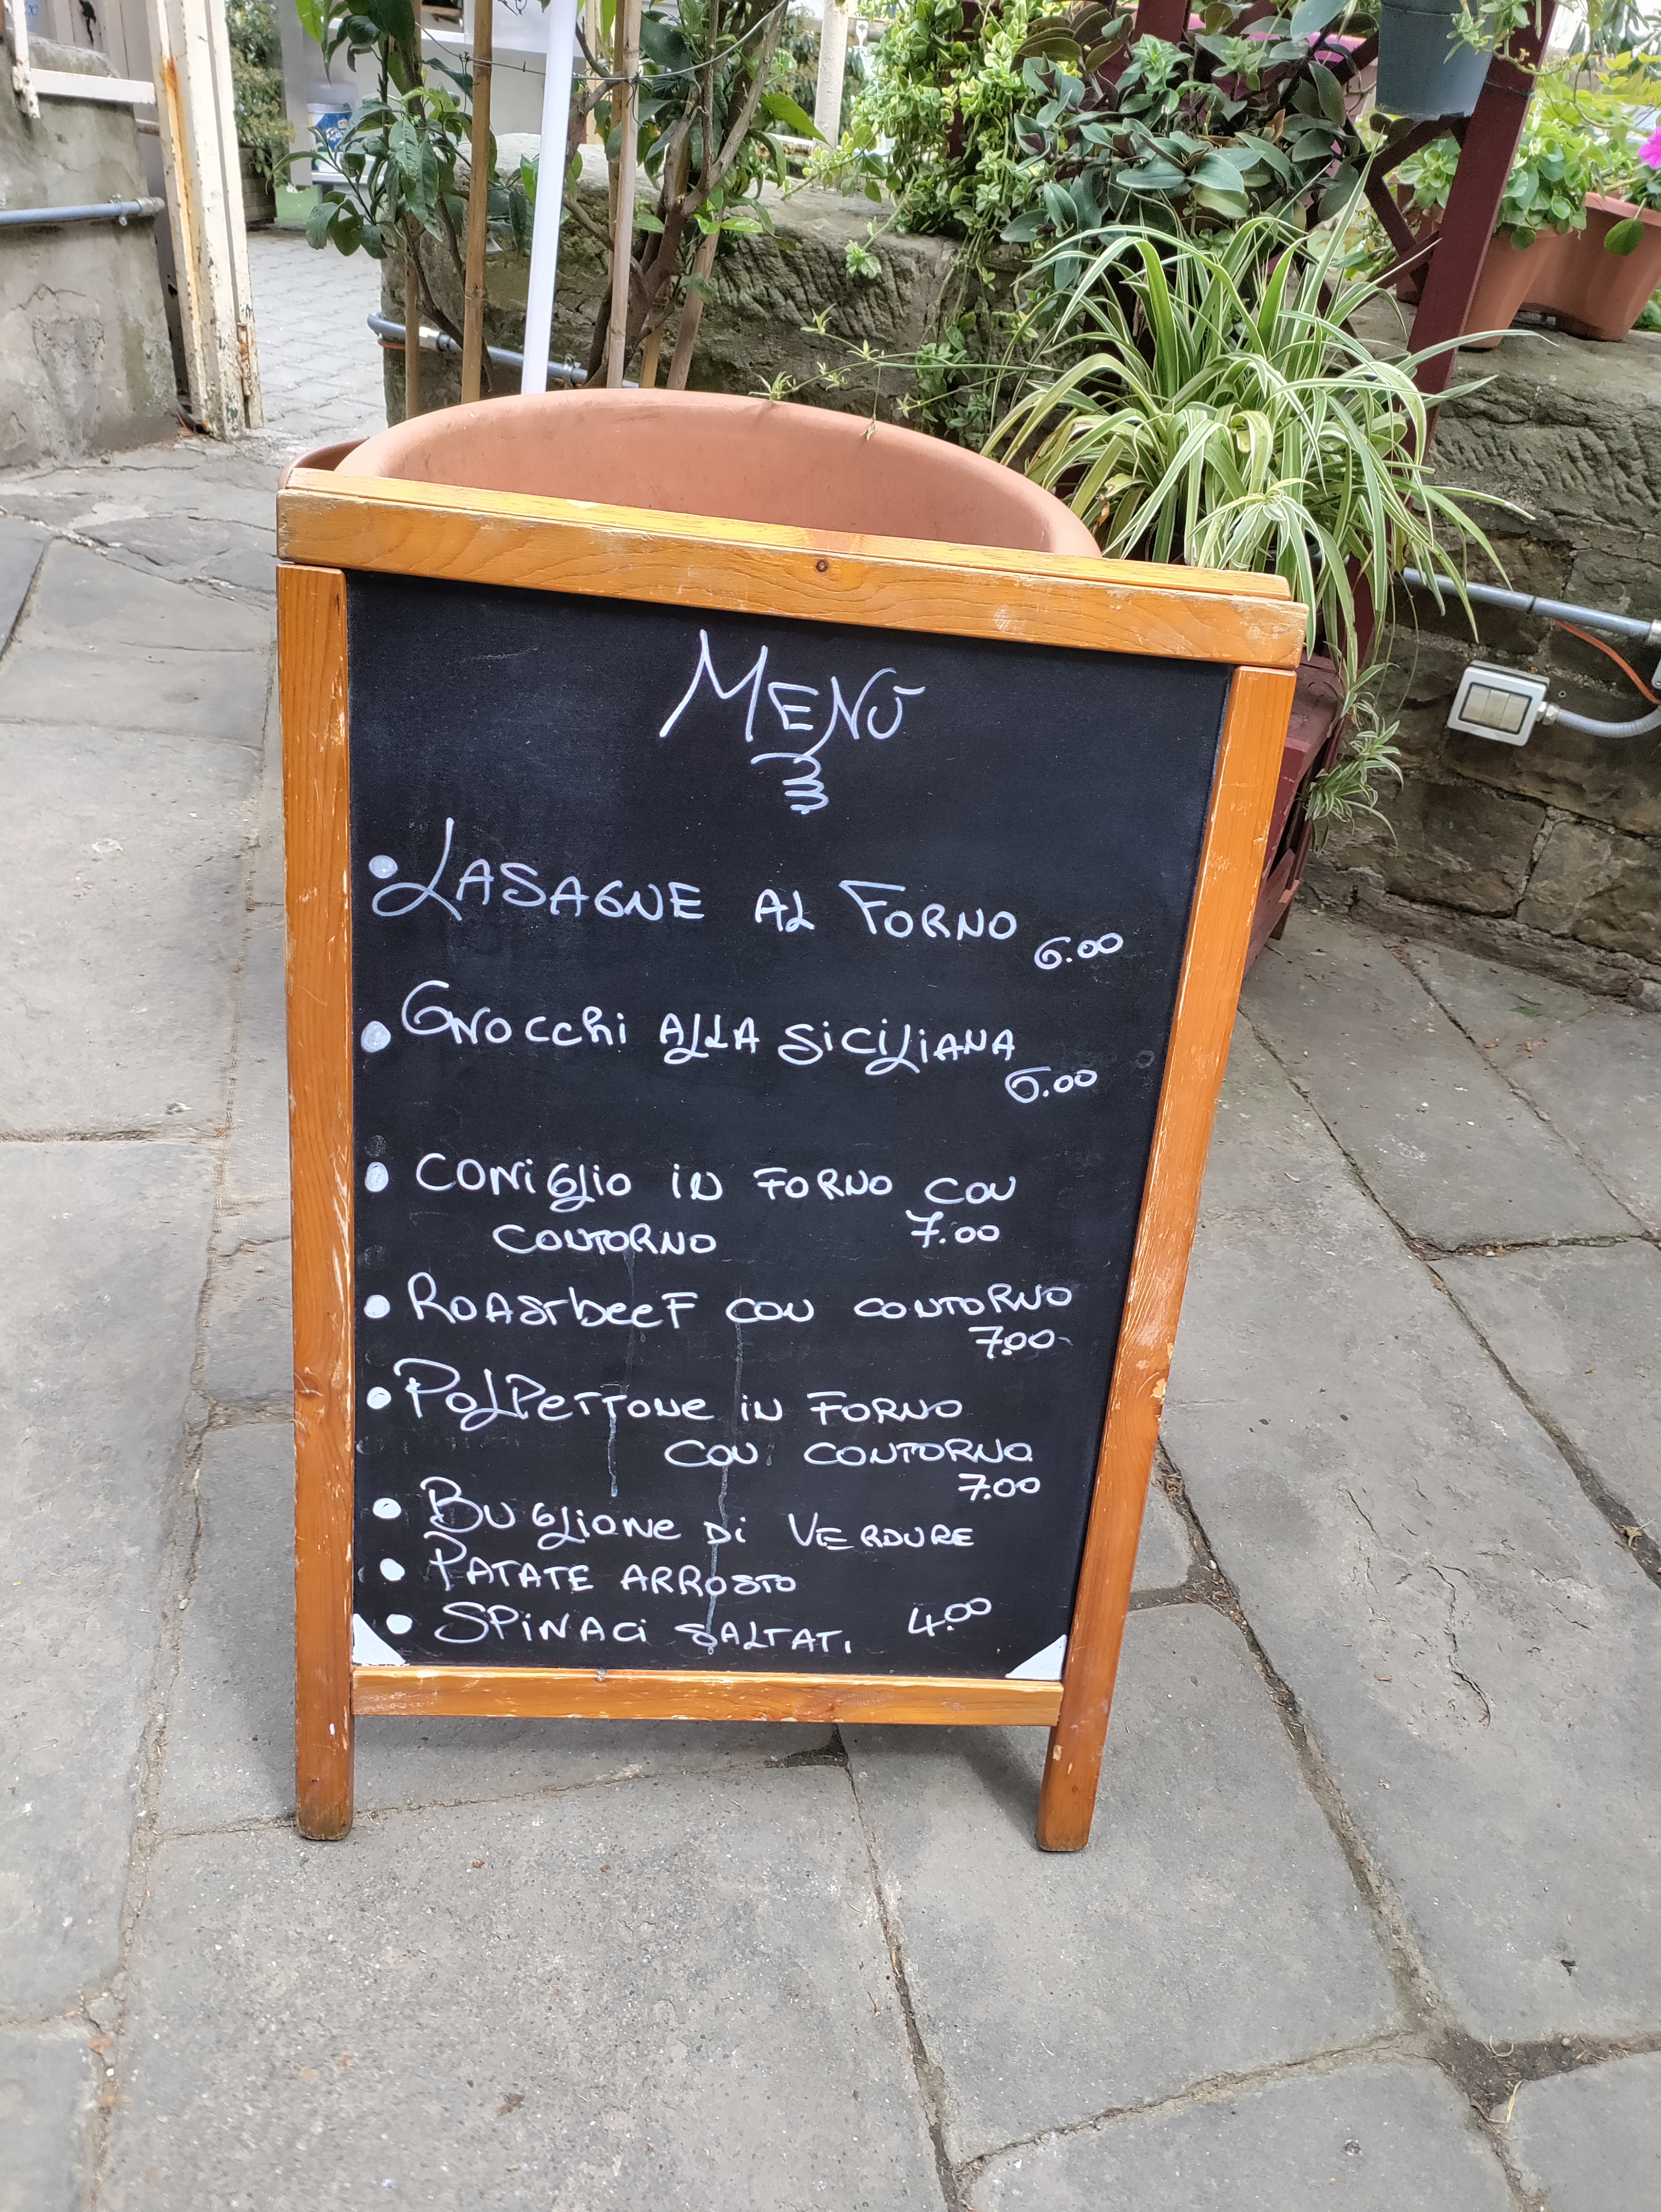 MENÙ
• LASAGNE AL FORNO 6.00
• GNOCCHI ALLA SICILIANA
6.00
• CONIGLIO IN FORNO CON
CONTORNO 7.00
• ROASTBEEF CON CONTORNO
7.00
• POLPETTONE IN FORNO
CON CONTORNO
7.00
• BUGLIONE DI VERDURE
• PATATE ARROSTO
• SPINACI SALTATI 4.00